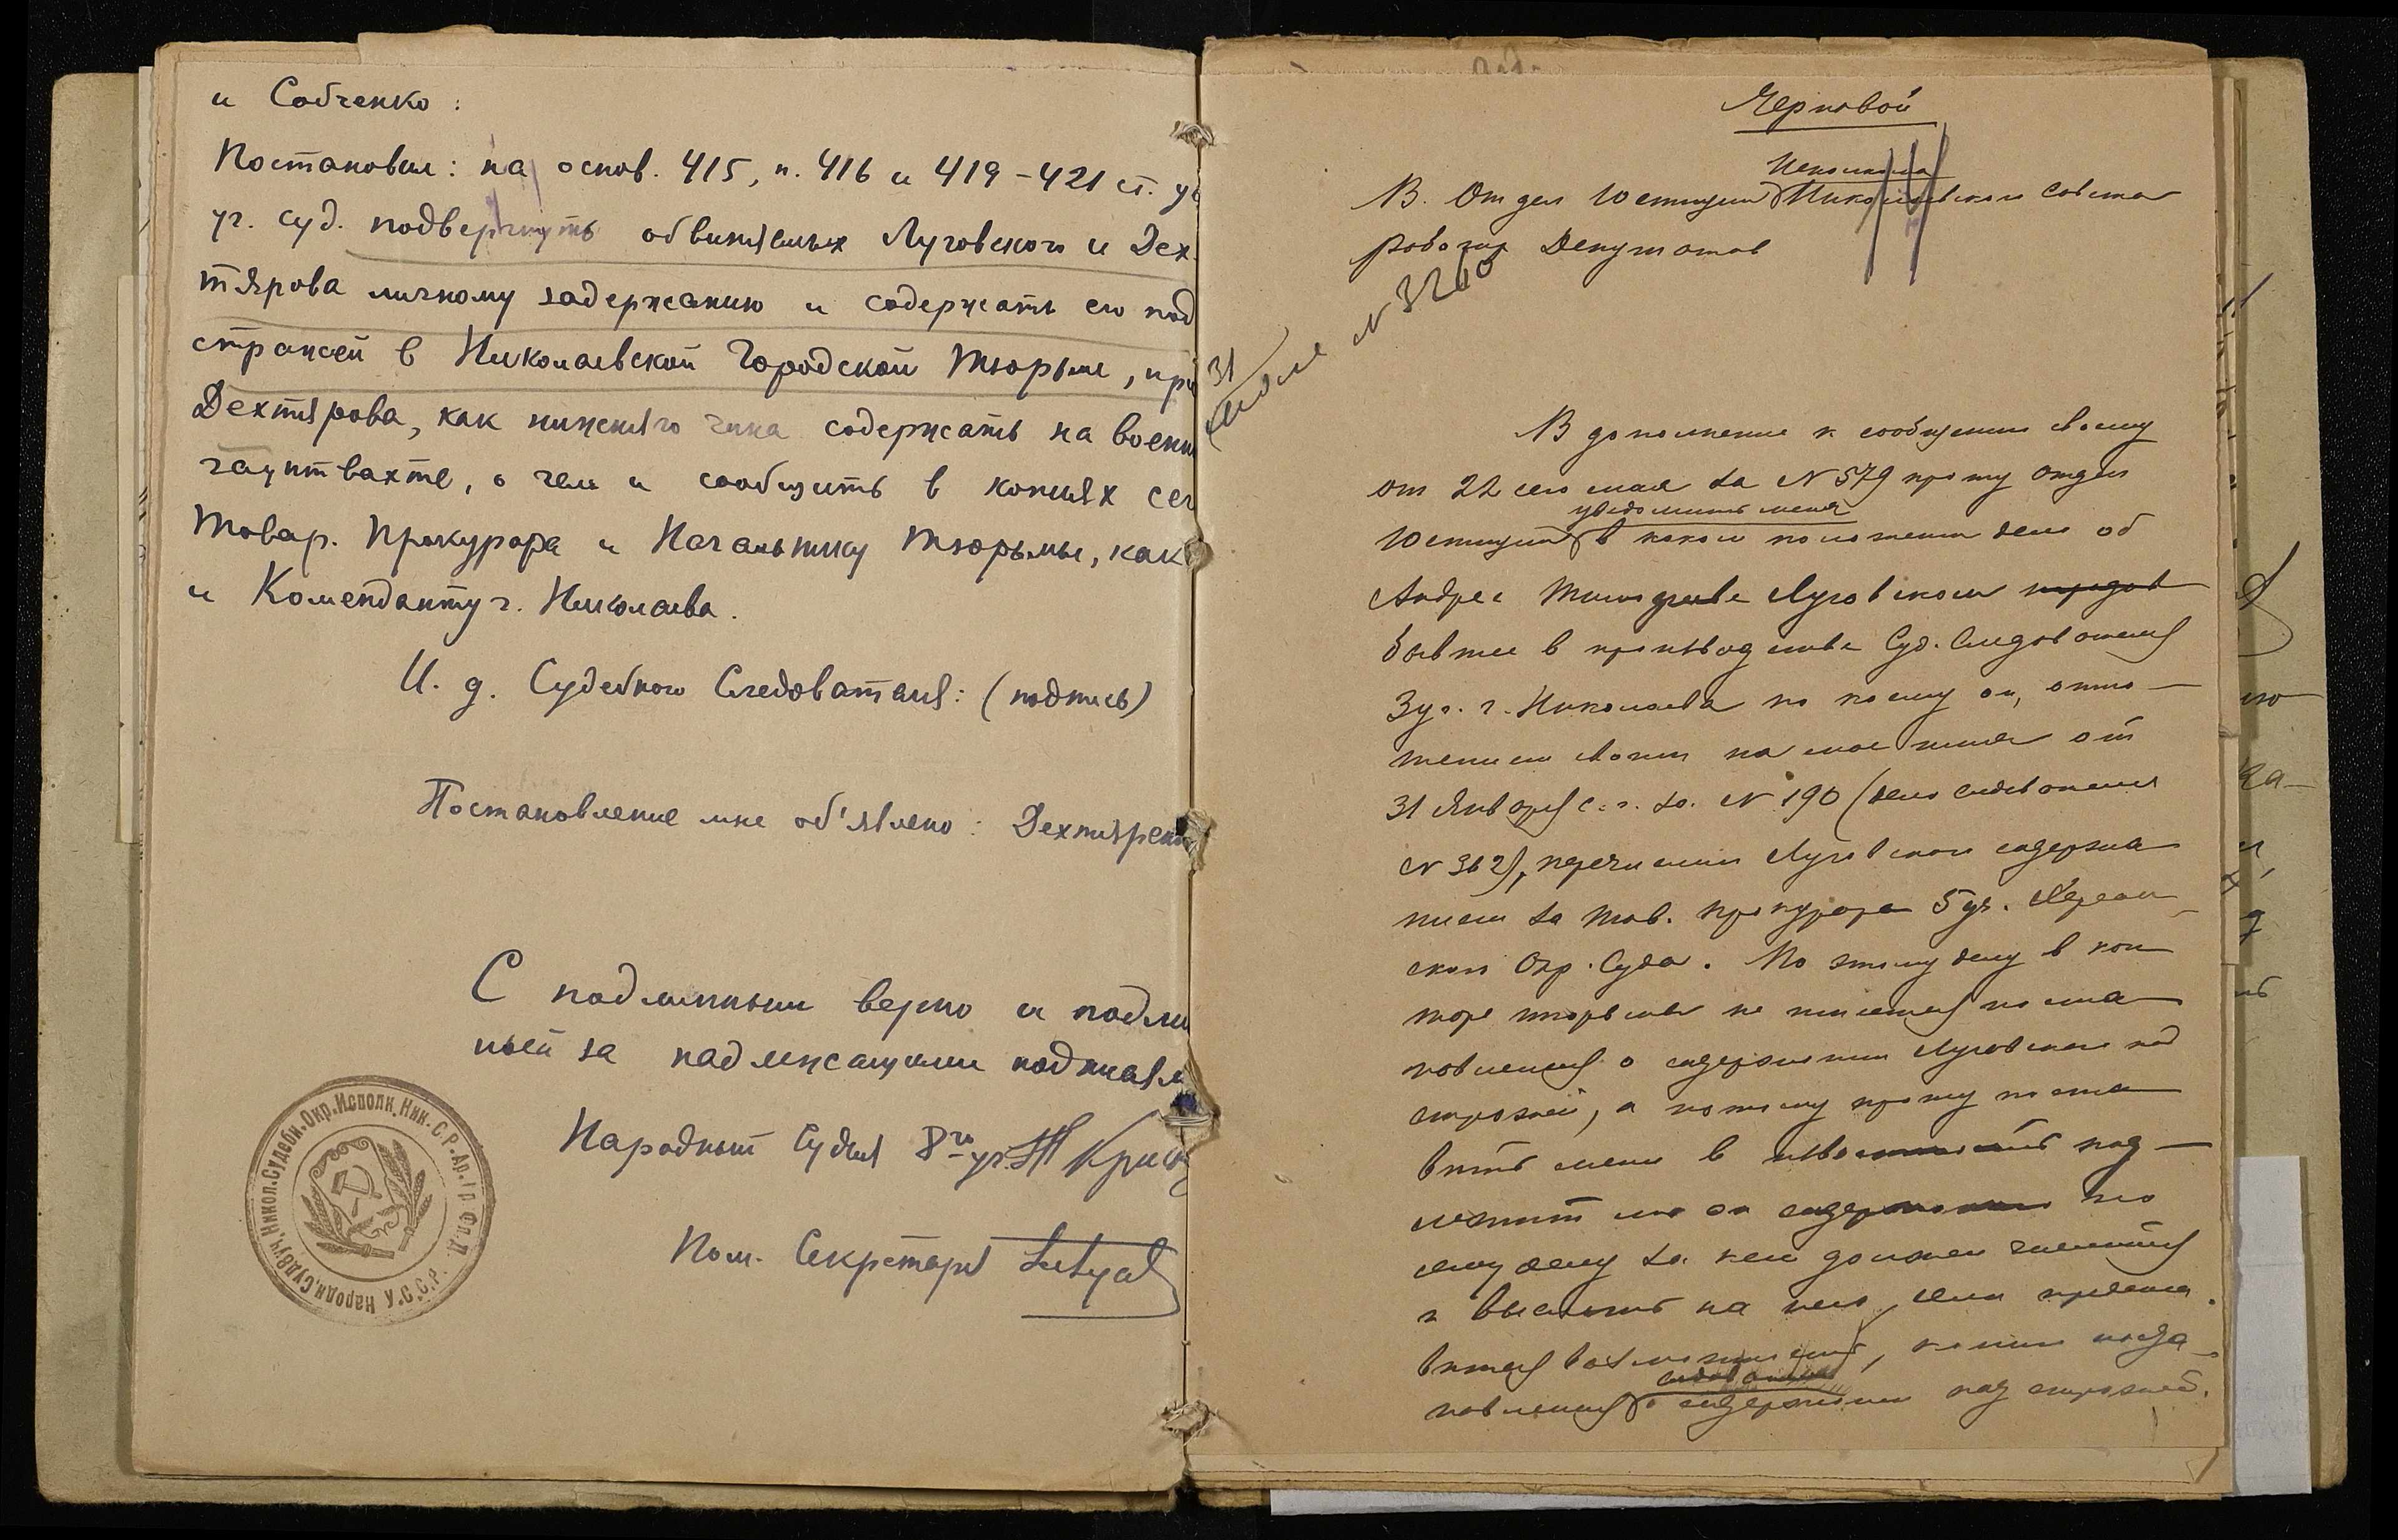 и Собченко:
Постановил: на основ. 415, п. 416 и 419-421 ст. у
уг. суд. подвергнуть обвиняемых Луговского и Дех-
тярова личному задержанию и содержать его под
стражей в Николаевской Городской Тюрьме, при
Дехтярова, как нижняго чина содержать на военн
гауптвахте, о чем и сообщить в копиях сего
Товар. Прокурора и Начальнику Тюрьмы, как
и Коменданту г. Николаева.
И. д. Судебного Следователя: (подпись)
Постановление мне об'явлено: Дехтярен
С подлинным верно и подлин
ный за надлежащими подписям
Народный Судья 8го уч.
Пом. Секретаря
Черновой
Исполкома
В. Отдел Юстиции Николаевскаго Совета
Рабочих Депутатов
31
Мая
N 3260
В дополнение к сообщению своему
от 22 сего мая за N 579 прошу Отдел
уведомить меня
Юстиции в каком положении дело об
Андрее Луговском
бывшее в производстве Суд. Следователя
3 уч. г. Николаева по коему он, отно-
шением своим на мое имя от
31 Января с. г. за N 190 (дело следователя
N 362), перечислил Луговского содержа
нием за тов. прокурора 5 уч. Херсон
скаго Окр. Суда. По этому делу в кон
торе тюрьмы не имеется поста
новления о содержании Луговского под
стражей, а потому прошу поста
вить меня в известность под-
лежит ли он содержанию по
сему делу за кем должен числиться
и выслать на него, если предста
вится возможным, копию поста-
новления о содержании под стражей.